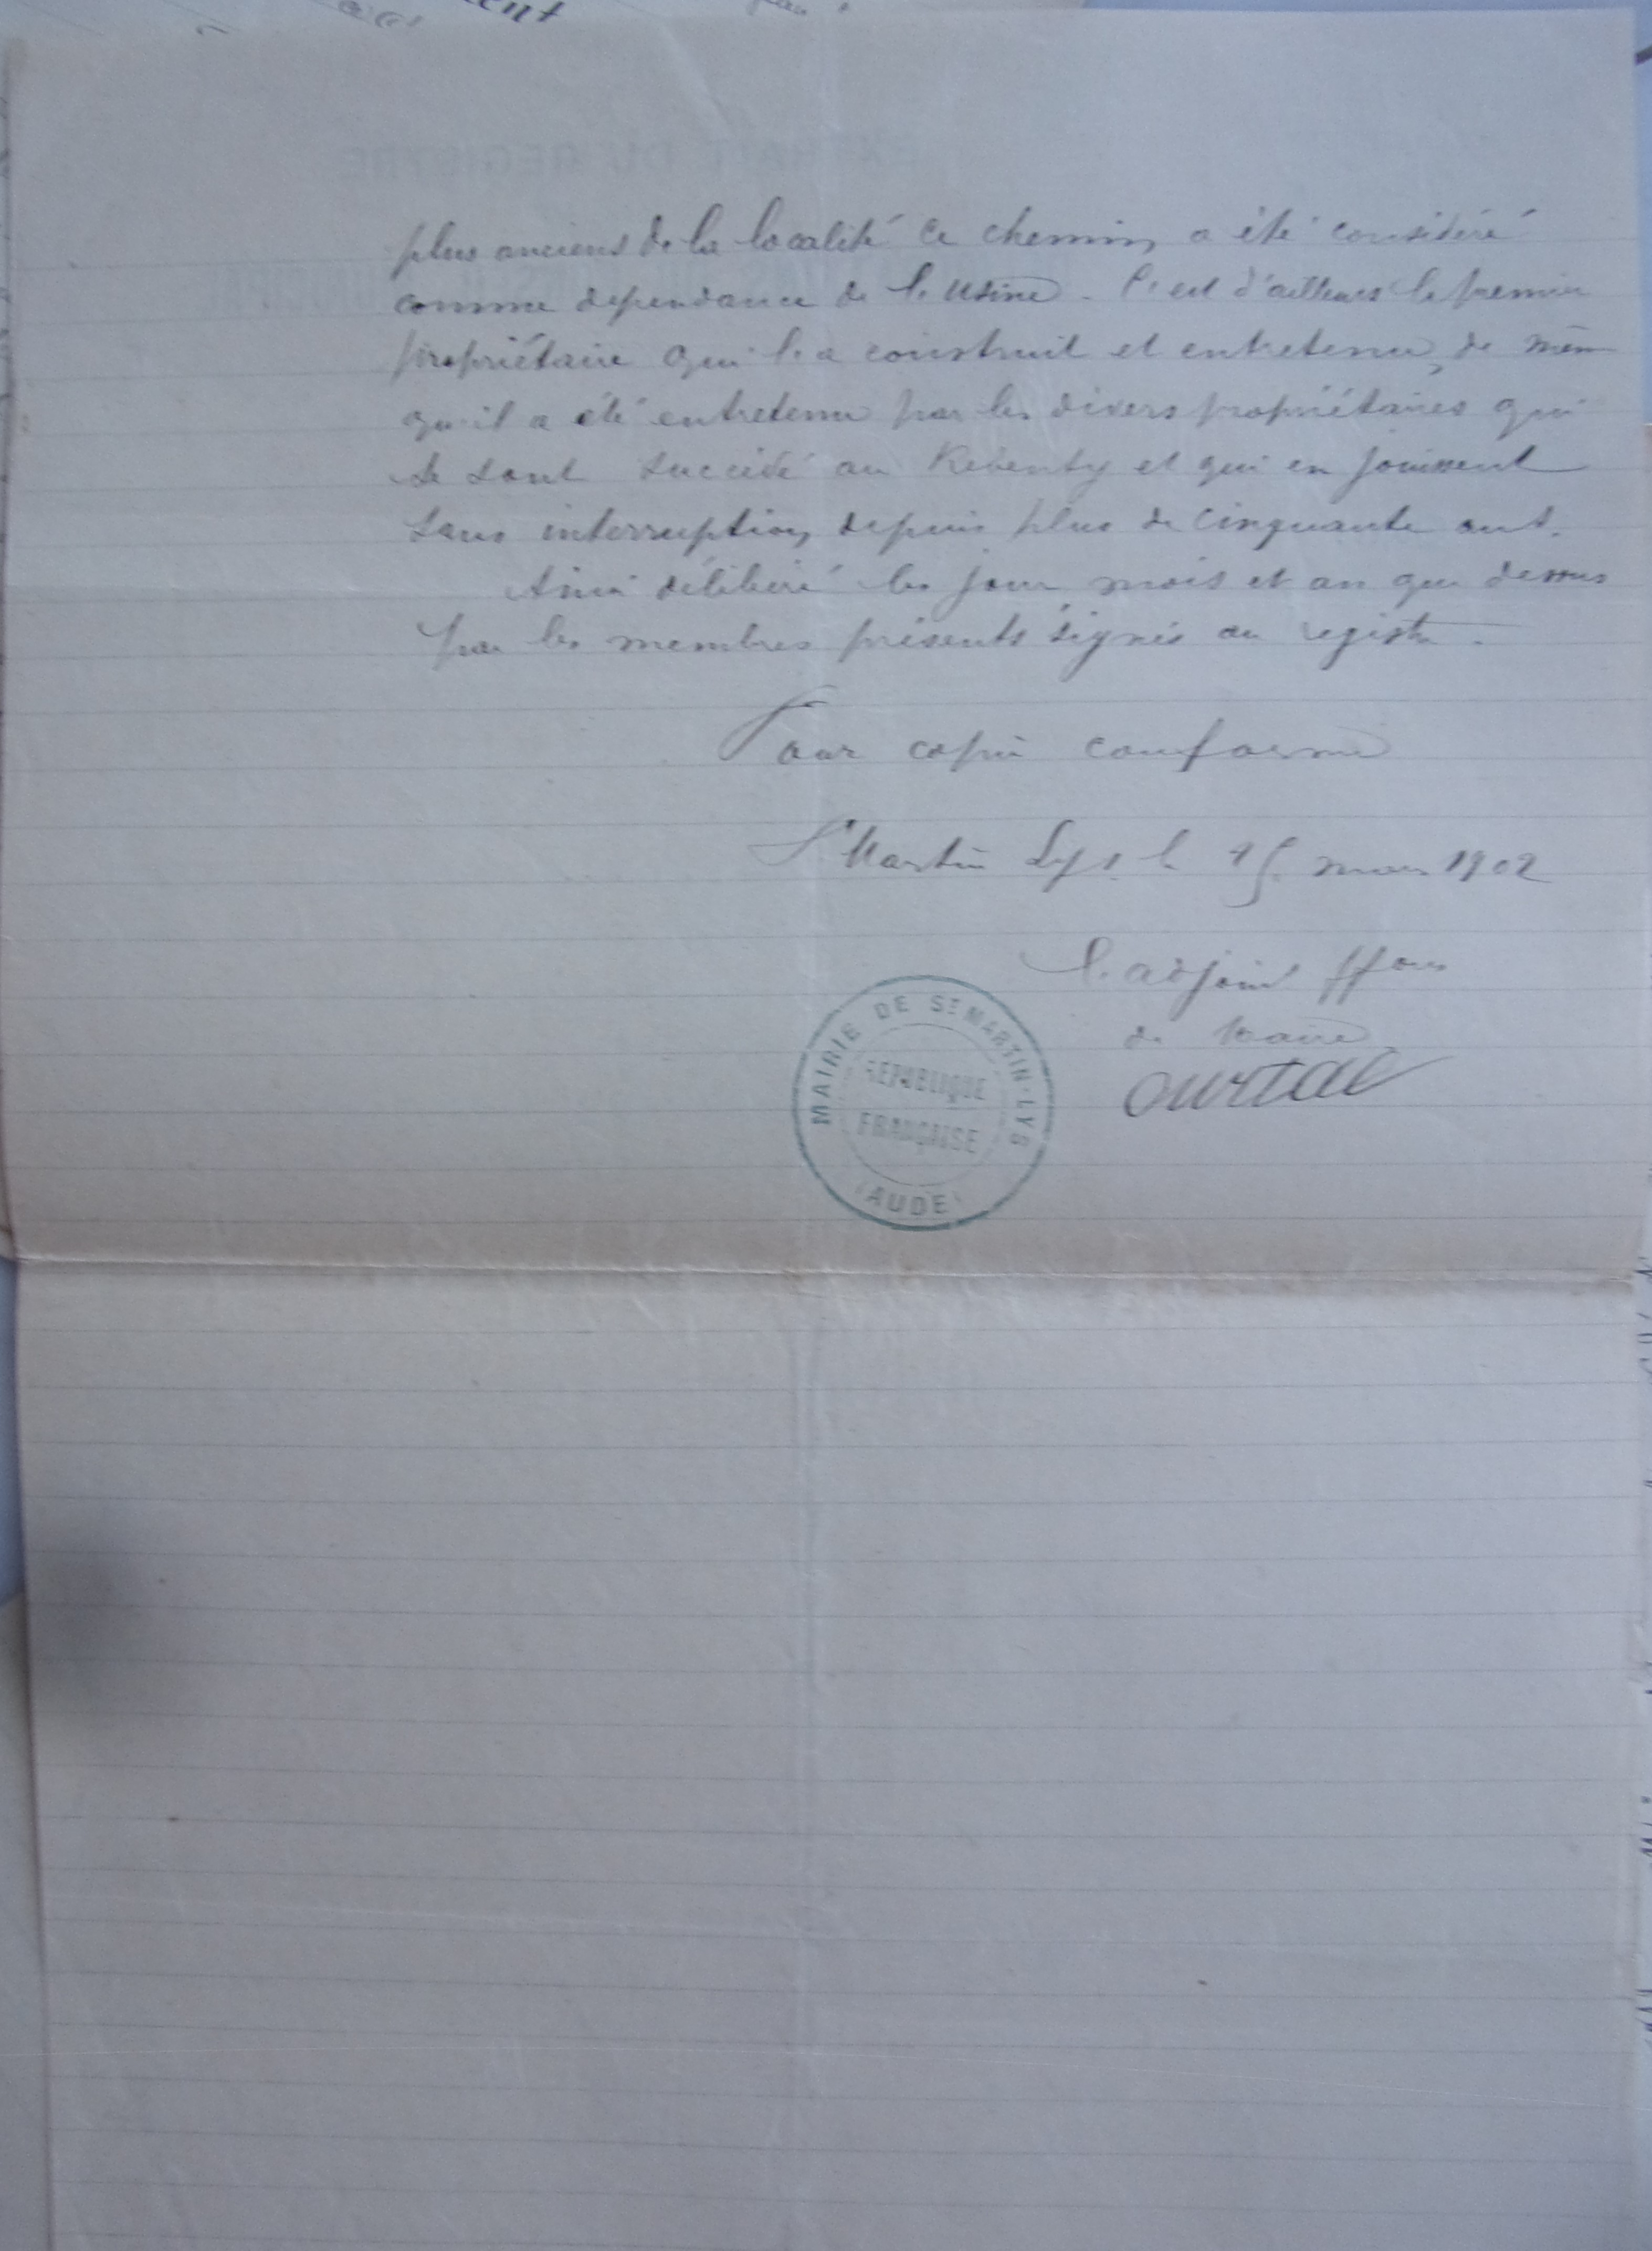 plus anciens de la localité ce chemin a été considéré
comme dependance de l'usine. C'est d'ailleurs le premier
propriétaire qui l'a construit et entretenu, de même
qu'il a été entretenu par les divers propriétaires qui
se sont succédé au Rebenty et qui en jouissent
sans interruption depuis plus de cinquante ans.
Ainsi délibéré les jour mois et an que dessus
par les membres présents signés au registre.
Pour copie conforme
St Martin Lys le 15 mars 1902
l'adjoint ffons
de Maire
Ourtal
MAIRIE DE ST MARTIN-LYS
REPUBLIQUE
FRANÇAISE
(AUDE)